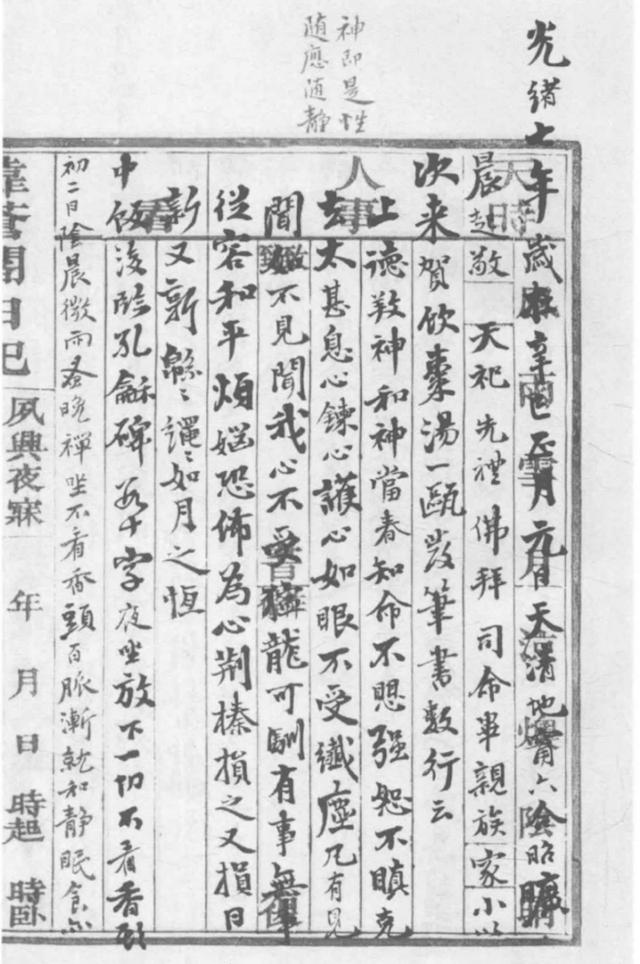 神即是性
随應随静
光緒七年歲在辛巳正月元日天清地甯六陰昭曠
晨起敬天祀先禮佛拜司命畢親族家小以
次来賀飲棗湯一甌發筆書数行云
上德敎神和神當春知命不思强恕不瞋克
去太甚息心鍊心護心如眼不受纖塵凡有見
聞如不見聞我心不受獰龍可馴有事無事
從容和平煩惱恐怖為心荆榛損之又損日
新又新緜緜繩繩如月之恆
中飯後臨孔龢碑卅字夜坐放下一切不看香頭
初二日陰晨微雨蚤晚禪坐不看香頭百脈漸就和静眠食亦
日記
夙興夜寐 年 月 日 時起 時卧
天時
人事